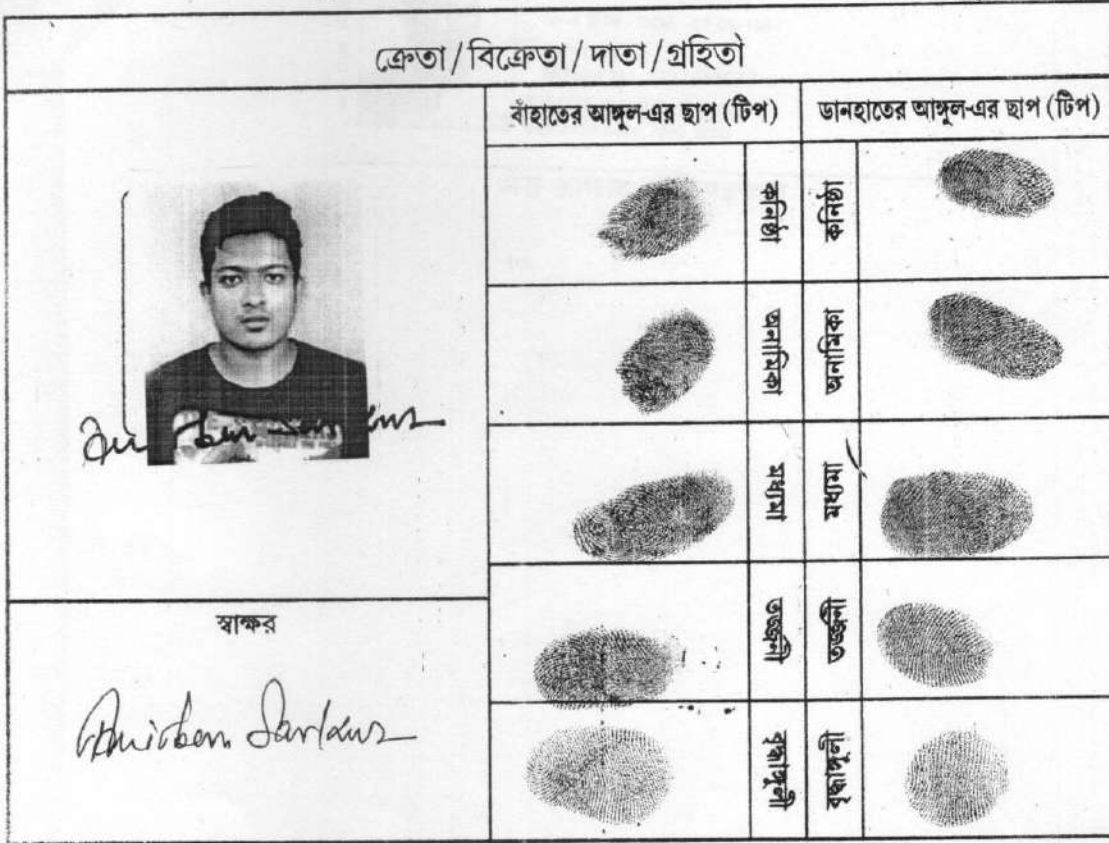 ক্রেতা / বিক্রেতা / দাতা / গ্রহিতা
বাঁহাতের আঙ্গুল-এর ছাপ (টিপ)
ডানহাতের আঙ্গুল-এর ছাপ (টিপ)
কনিষ্ঠা
কনিষ্ঠা
অনামিকা
অনামিকা
মধ্যমা
মধ্যমা
তর্জ্জনী
তর্জ্জনী
বৃদ্ধাঙ্গুলী
বৃদ্ধাঙ্গুলী
স্বাক্ষর
Anirban Sarkar